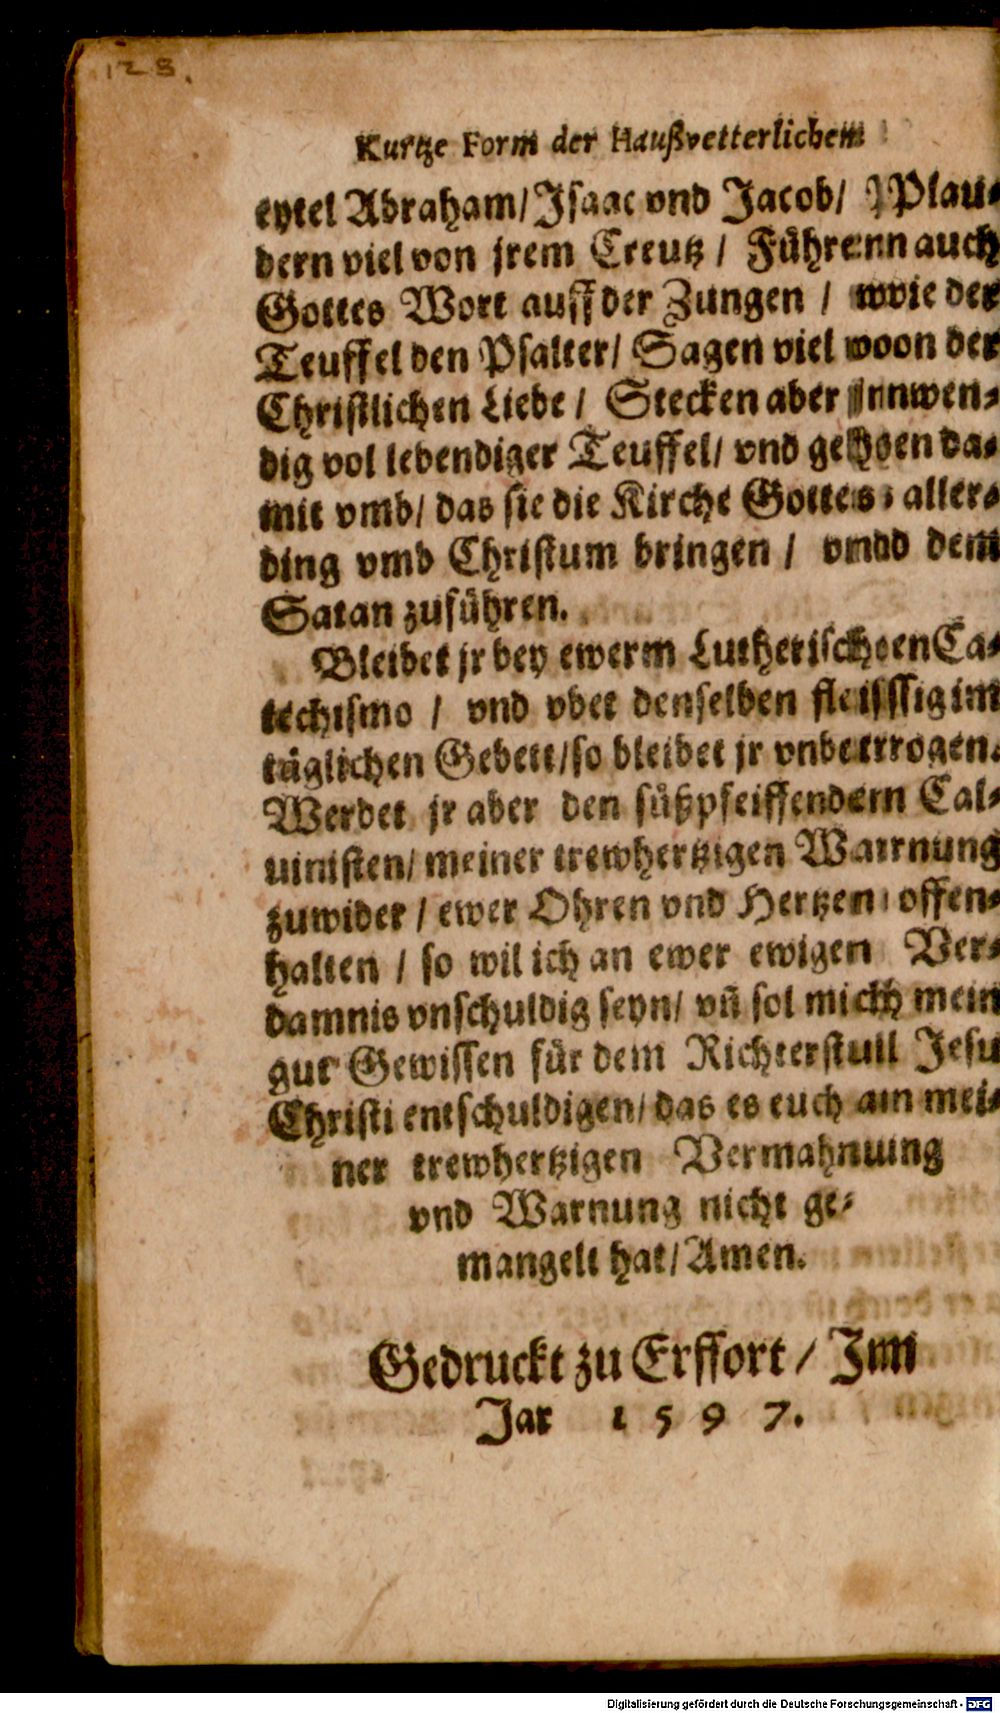 128.
Kurtze Form der Haußvetterlichem
eytel Abraham/ Isaac vnd Jacob/ Plau-
dern viel von jrem Creutz / Führenn auch
Gottes Wort auff der Zungen / wie der
Teuffel den Psalter/ Sagen viel von der
Christlichen Liebe / Stecken aber innwen-
dig vol lebendiger Teuffel/ vnd gehen da-
mit vmb/ das sie die Kirche Gottes, aller-
ding vmb Christum bringen / vnnd dem
Satan zuführen.
Bleibet jr bey ewerm Lutherischen Ca-
techismo / vnd vbet denselben fleissig im
täglichen Gebett/so bleibet jr vnbetrogen.
Werdet jr aber den süßpfeiffendern Cal-
uinisten/ meiner trewhertzigen Warnung
zuwider / ewer Ohren vnd Hertzen offen-
halten / so wil ich an ewer ewigen Ver-
damnis vnschuldig seyn/ vñ sol mich mein
gut Gewissen für dem Richterstull Jesu
Christi entschuldigen/ das es euch an mei-
ner trewhertzigen Vermahnung
vnd Warnung nicht ge-
mangelt hat/ Amen.
Gedruckt zu Erffort / Inn
Jar 1 5 9 7.
Digitalisierung gefördert durch die Deutsche Forschungsgemeinschaft - DFG